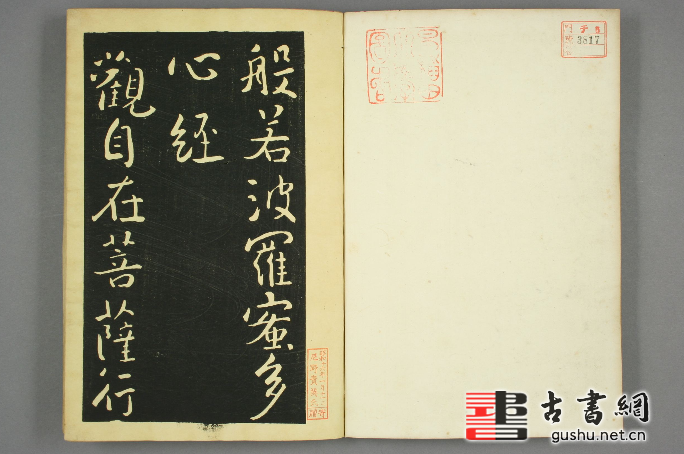 般若波羅蜜多
心經
觀自在菩薩行
3817
古書網
gushu.net.cn